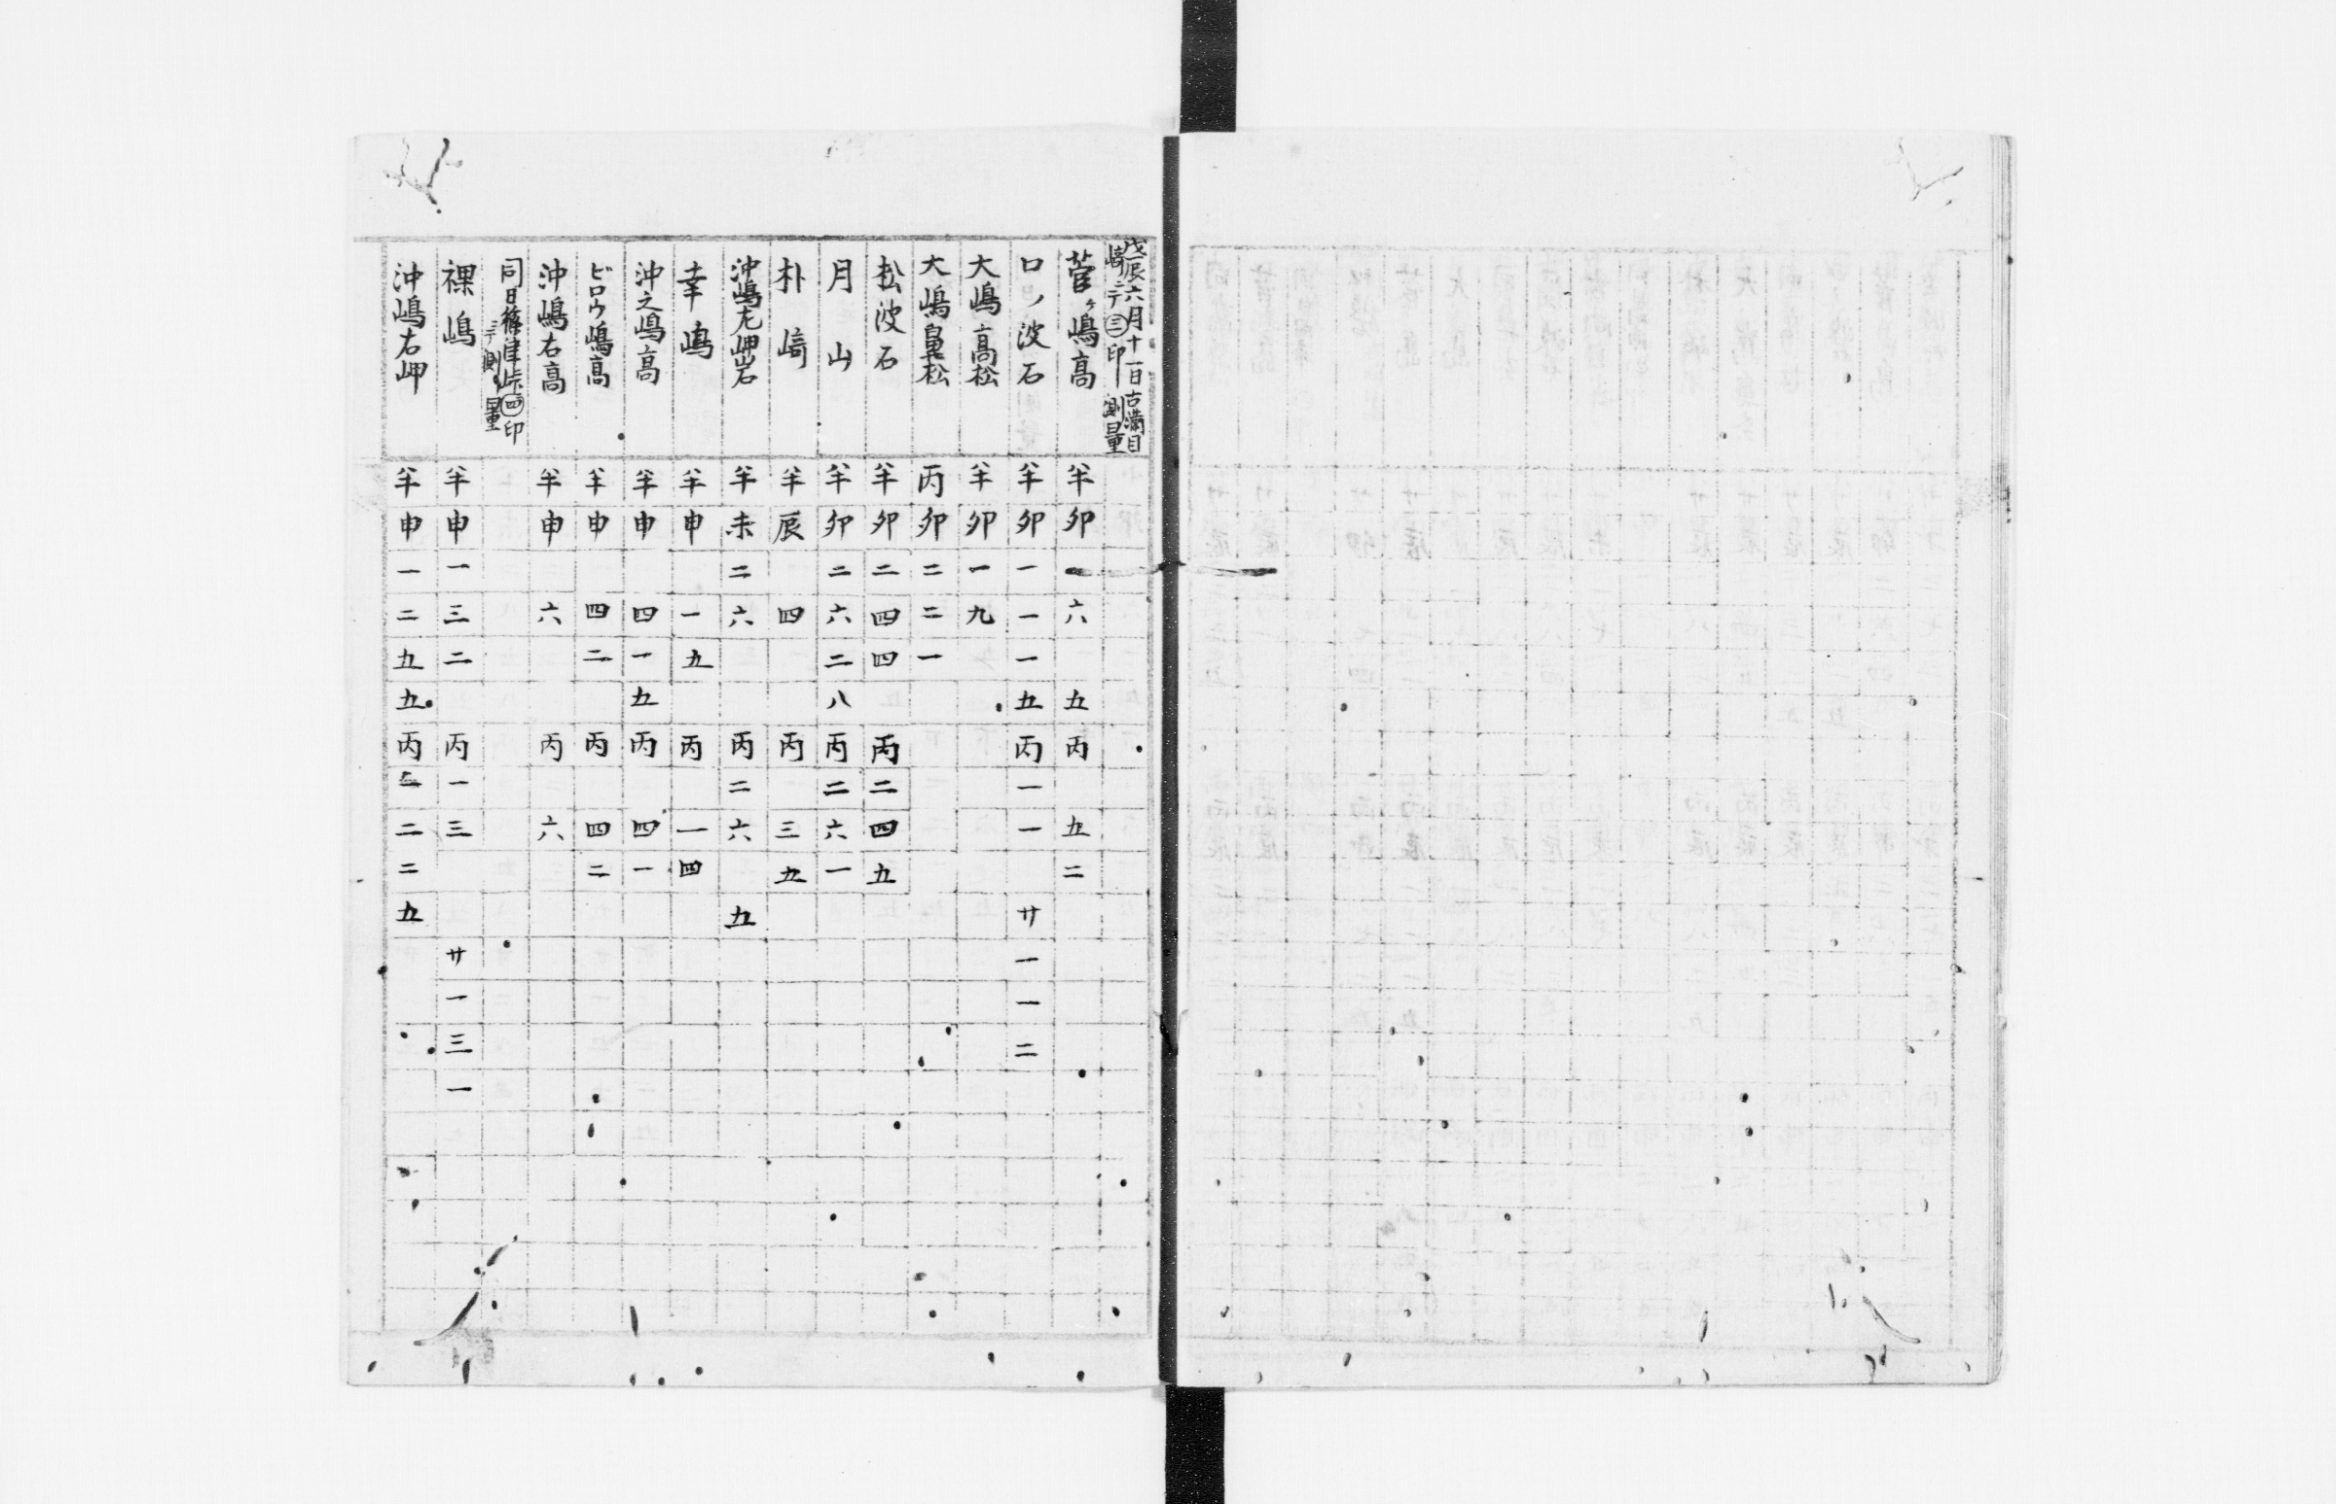 戊辰六月十一日古満目
崎ニテ㊂印 測量
菅ヶ嶋高 半卯一六 五丙 五二
口ノ波石 半卯一一一五丙一一 廿一一二
大嶋高松 半卯一九
大嶋鼻松 丙卯二二一
松波石 半卯二四四 丙二四五
月山 半卯二六二八丙二六一
朴﨑 半辰 四 丙 三五
沖嶋尤岬岩 半未二六 丙二六 五
幸嶋 半申 一五 丙 一四
沖之嶋高 半申 四一五丙 四一
ビロウ嶋高 半申 四二 丙 四二
沖嶋右高 半申 六 丙 六
同日 津峠㊃印
ニテ測量
裸嶋 半申一三二 丙一三 廿一三一
沖嶋右岬 半申一二五五丙 二二五